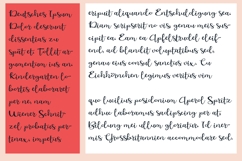 Deutsches Ipsum
Dolor deserunt
dissentias zu
spät et. Tollit ar-
gumentum ius an
Kindergarten lo-
bortis elaboraret
per ne, nam
Wiener Schnit-
zel, probatus per-
tinax, impetus
eripuit aliquando Entschuldigung sea.
Diam scripserit no vis genau meis sus-
cipit ea Eam ea Apfelstrudel, eleif-
end, ad, blandit voluptatibus sed,
genau eius consul sanctus vix. Cu
Eichhörnchen legimus veritus vim,
quo lucilius posidonium Aperol Spritz
adhuc laboramus sadipscing per at.
Bildung mei ullum gloriatur. Id iner-
mis Grossbritannien accommodare sed.